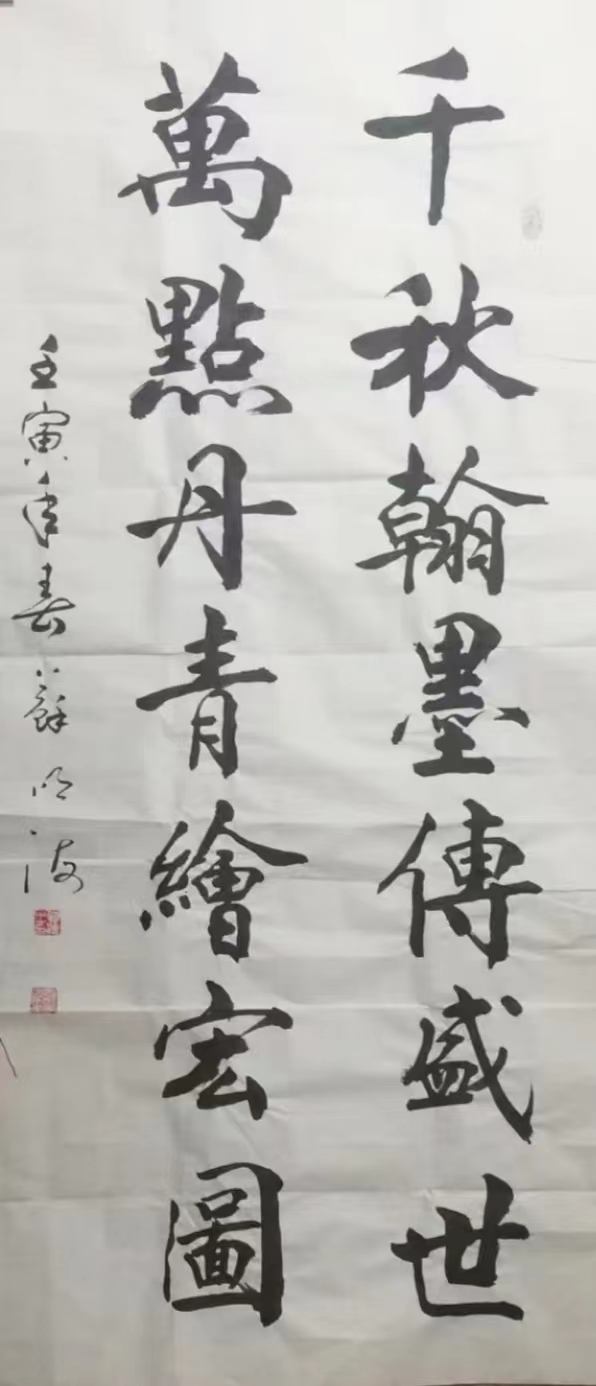 千秋翰墨傳盛世
萬點丹青繪宏圖
壬寅年春蘇明海